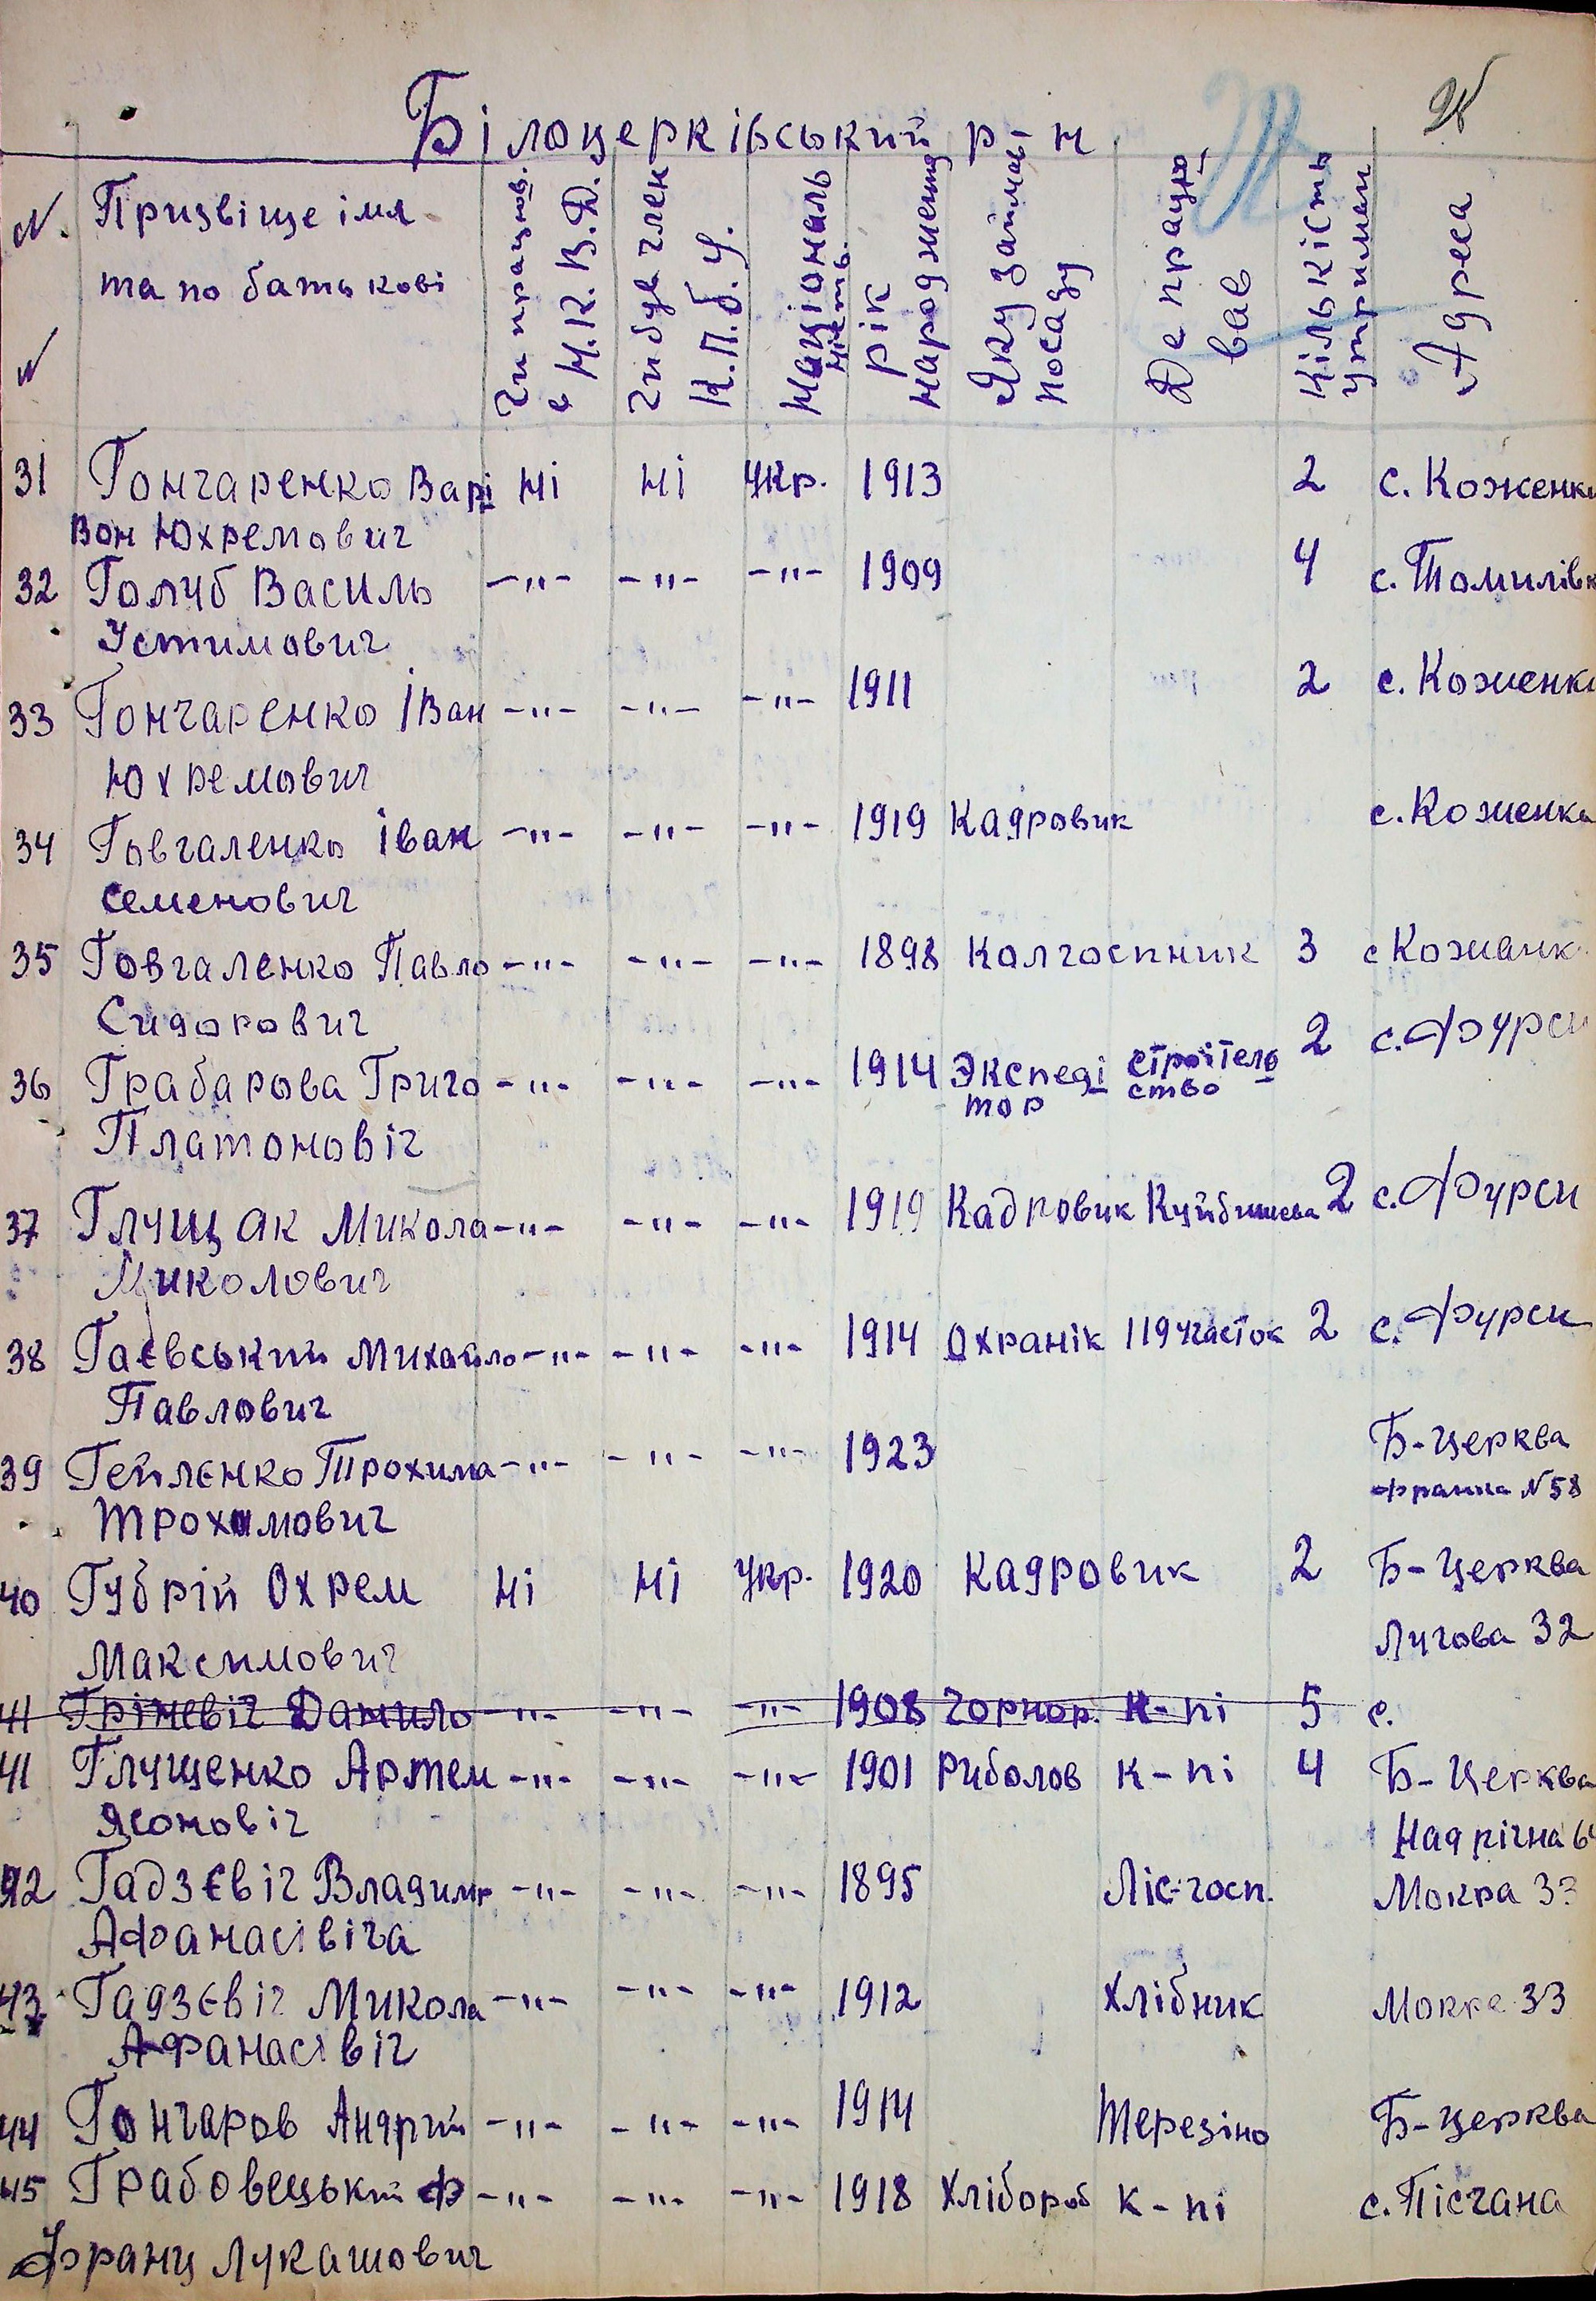 Білоцерківський р-н
№ Призвіще імя та по батькові
Чи працюв. в Н.К.В.Д.
Чи був член К.П.б.У.
Національність.
Рік народження
Яку займав посаду
Де працював
Кількість утриман
Адреса
31 Гончаренко Варі Ні Ні Укр. 1913 2 с. Коженки
Вон Юхремович
32 Голуб Василь -"- -"- -"- 1909 4 с. Томилівк
Устимович
33 Гончаренко Іван -"- -"- -"- 1911 2 с. Коженки
Юхремович
34 Говгаленко Іван -"- -"- -"- 1919 Кадровик с. Коженка
Семенович
35 Говгаленко Павло -"- -"- -"- 1898 Колгоспник 3 с Кожанк
Сидорович
36 Грабарова Григо -"- -"- -"- 1914 Экспеді строітель 2 с. Фурси
тор ство
Платоновіч
37 Глущак Микола -"- -"- -"- 1919 Кадровик Куйбишева 2 с. Фурси
Миколович
38 Гаєвський Михайло -"- -"- -"- 1914 Охранік 119 участок 2 с. Фурси
Павлович
39 Гейленко Трохима -"- -"- -"- 1923 Б-Церква
Франка №58
Трохимович
40 Губрій Охрем Ні Ні Укр. 1920 Кадровик 2 Б-Церква
Лугова 32
Максимович
41 Гріневіч Данило -"- -"- -"- 1908 Чорнор. К-пі 5 с.
41 Глущенко Артем -"- -"- -"- 1901 Риболов к-пі 4 Б-Церква
Ясоновіч Надрічна 64
42 Гадзєвіч Владимр -"- -"- -"- 1895 Ліс-госп. Мокра 33
Афанасівіча
43 Гадзєвіч Микола -"- -"- -"- 1912 Хлібник Мокра 33
Афанасівіч
44 Гончаров Андрій -"- -"- -"- 1914 Терезіно Б-Церква
45 Грабовецький Ф -"- -"- -"- 1918 Хлібороб к-пі с. Пісчана
Франц Лукашович